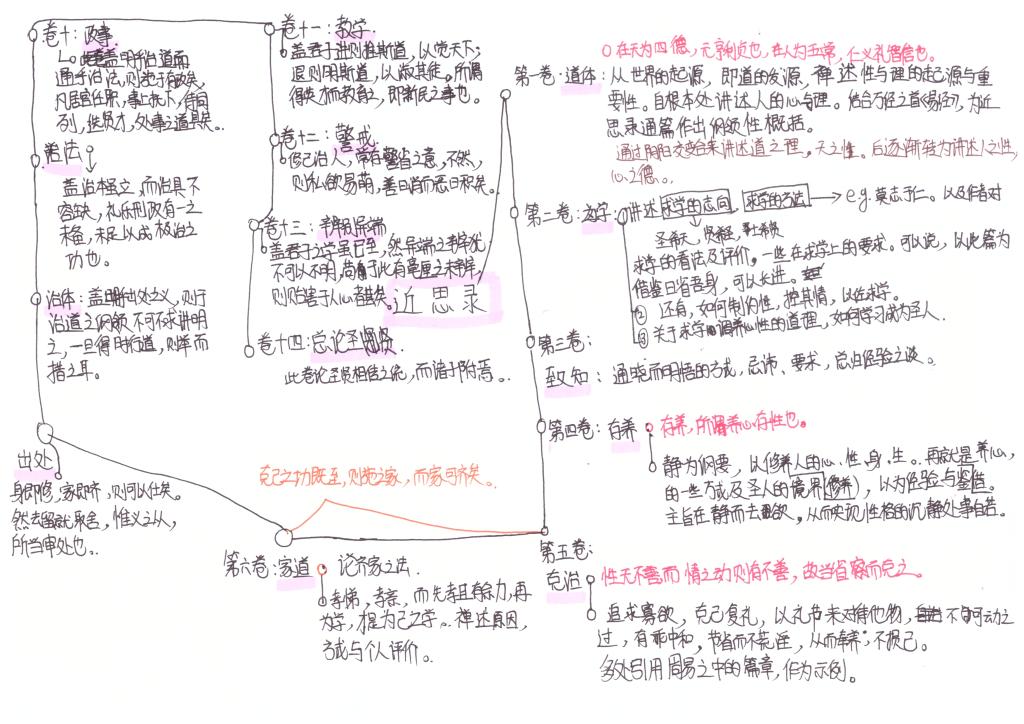 近思录
在天为四德，元亨利贞也，在人为五常，仁义礼智信也。
第一卷·道体：从世界的起源，即道的发源，禅述性与理的起源与重
要性。自根本处讲述人的心与理。结合万经之首《易经》，为近
思录通篇作出纲领性概括。
通过阴阳交合来讲述道之理，天之性。后逐渐转为讲述人之性，
心之德。
第二卷：为学
讲述求学的志向，求学的方法 → e.g.莫志于仁。以及作者对
圣希天，贤希圣，士希贤
求学的看法及评价，一些在求学上的要求。可以说，以此篇为
借鉴日省吾身，可以长进。
① 还有，如何制约性，控其情，以佐求学。
② 关于求学调养心性的道理，如何学习成为圣人。
第三卷：
致知：通晓而明悟的方式，忌讳、要求，总归经验之谈。
第四卷：存养
存养，所谓养心存性也。
静为纲要，以修养人的心、性、身、生。再就是养心，
的一些方式及圣人的境界（修养），以为经验与鉴借。
主旨在静而去欲，从而实现性格的沉静处事自若。
第五卷：
克治
性无不善而情之动则有不善，故当省察而克之。
追求寡欲，克己复礼，以礼节来对待他物，不可动之
过，有乖中和，节省而不荒淫，从而养；不损己。
多处引用周易之中的篇章，作为示例。
克己之功既至，则施之家，而家可齐矣。
第六卷：家道
论齐家之法
孝悌，孝亲，而先孝且有余力，再
为学，提为己之学。禅述原因，
方式与个人评价。
出处
身即修，家即齐，则可以仕矣。
然去留就取舍，惟义之从，
所当审处也。
治体：盖明出处之义，则于
治道之纲领不可不求讲明
之，一旦得时行道，则举而
措之耳。
治法
盖治本虽立，而治具不
容缺，礼乐刑政有一之
未备，未足以成极治之
功也。
卷十：政事
盖明于治道而
通乎治法，则施于政矣，
凡居官任职，事上抚下，待同
列，选贤才，处事之道具矣。
卷十一：教学
盖君子进则推斯道，以觉天下；
退则明斯道，以淑其徒。所谓
得英才而教育之，即新民之事也。
卷十二：警戒
修己治人，常存警省之意，不然，
则私欲易萌，善日消而恶日积矣。
卷十三：辨别异端
盖君子之学虽已至，然异端之辨尤
不可以不明，尚于此有毫厘之未辨，
则贻害于人心者甚矣。
卷十四：总论圣贤
此卷论圣贤相传之统，而诸子附焉。